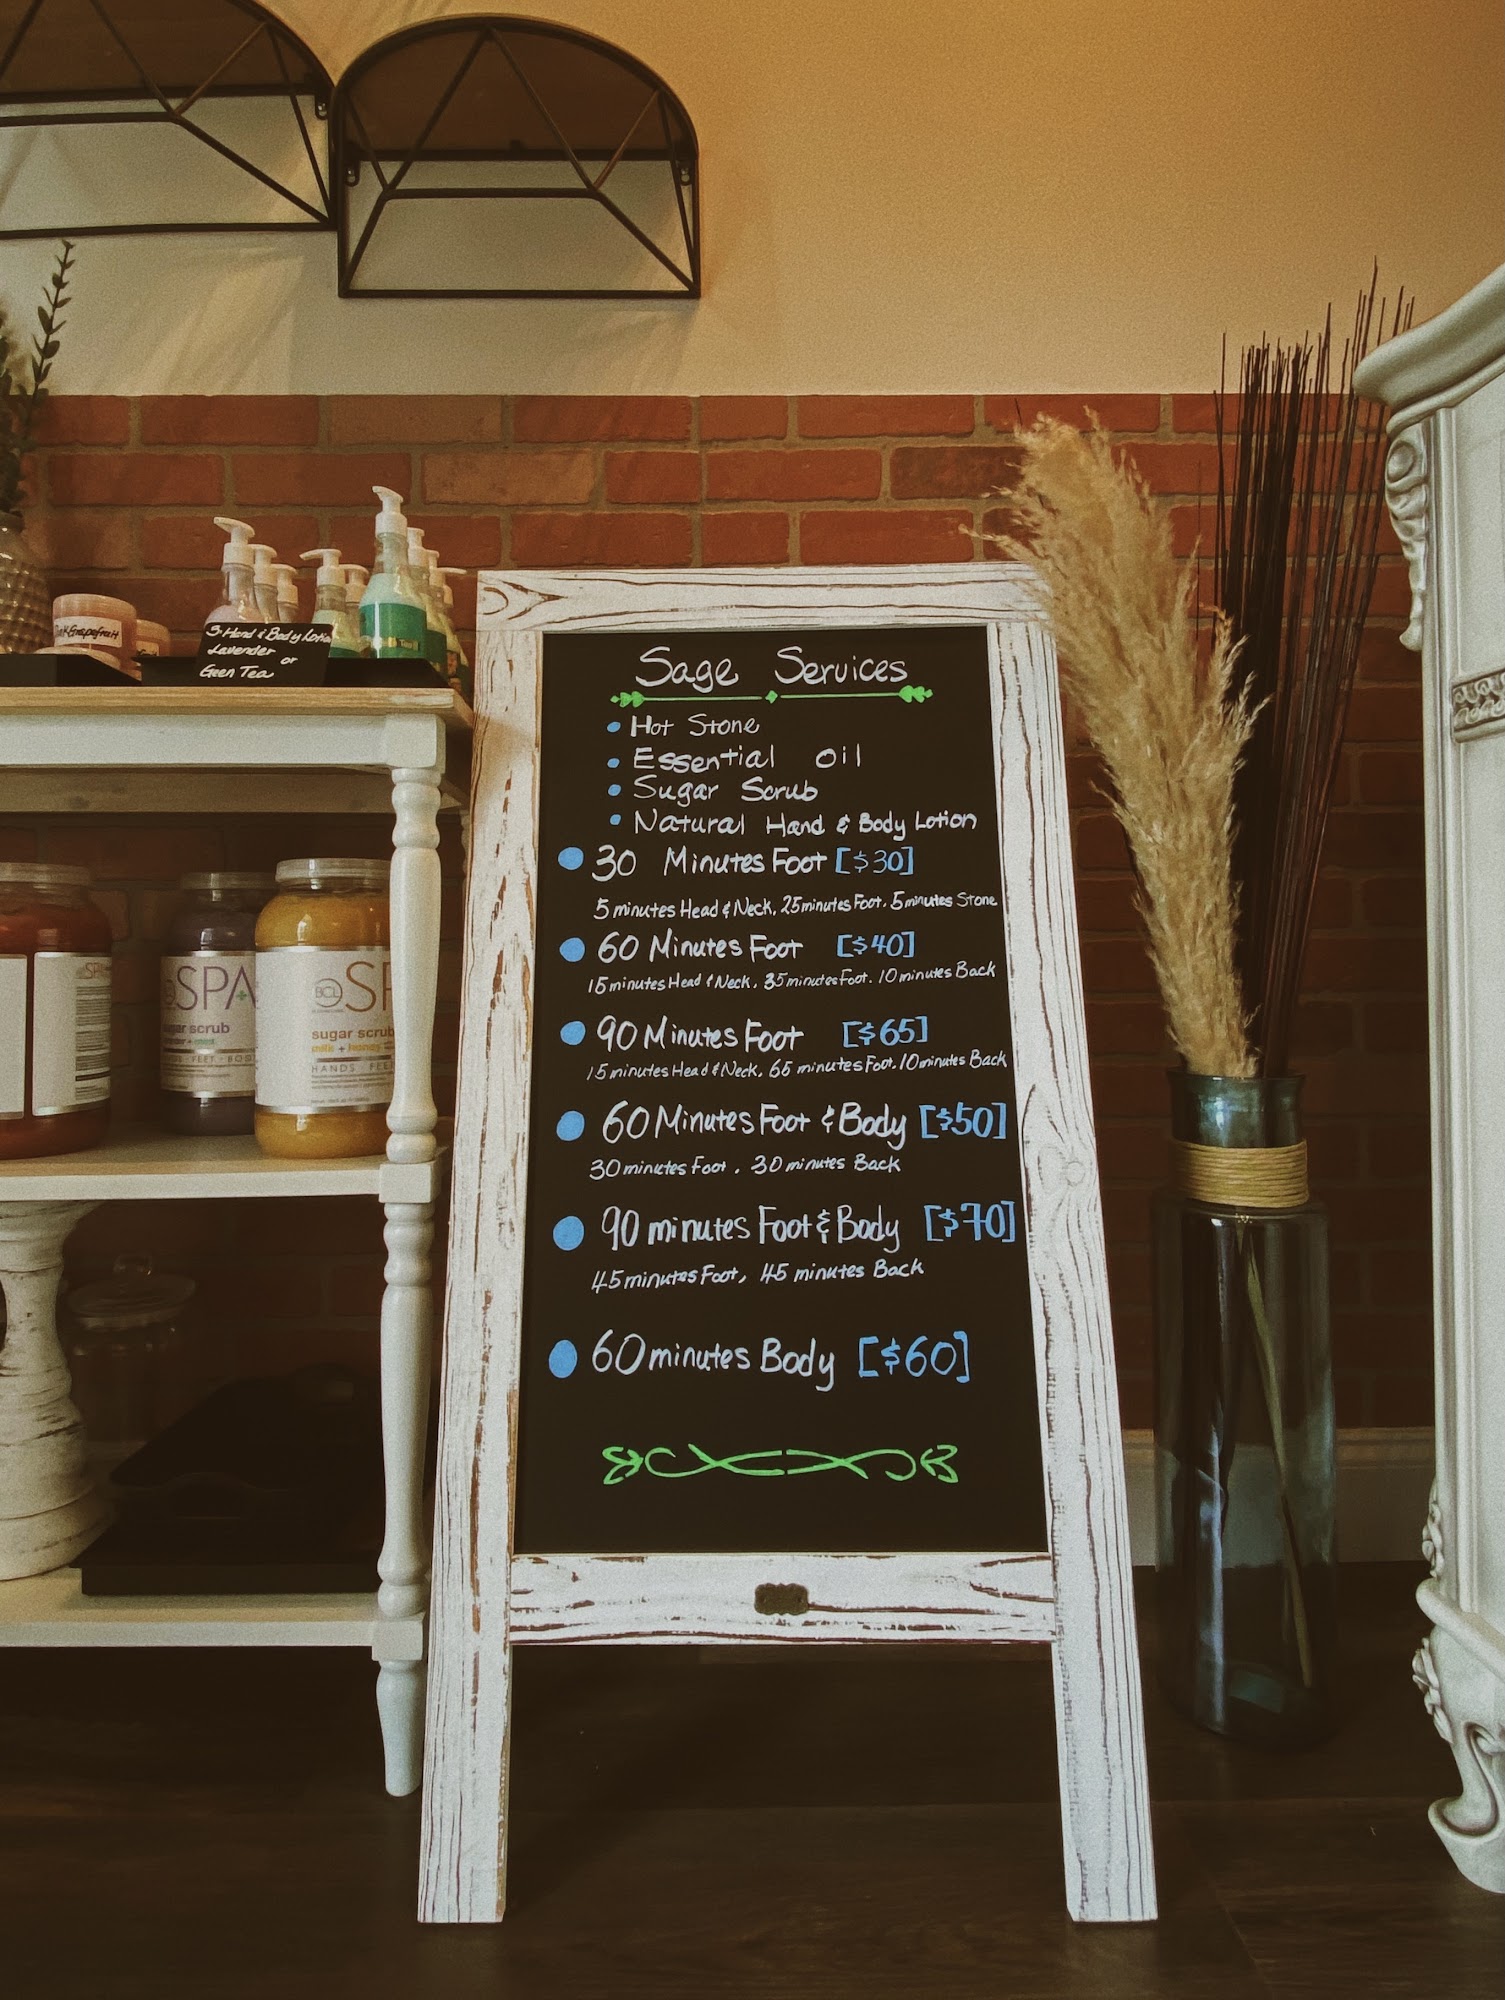 Sage Services
Hot Stone
Essential Oil
Sugar Scrub
Natural Hand & Body Lotion
30 Minutes Foot [$30]
5 minutes Head & Neck, 25 minutes Foot, 5 minutes Stone
60 Minutes Foot [$40]
15 minutes Head & Neck, 35 minutes Foot, 10 minutes Back
90 Minutes Foot [$65]
15 minutes Head & Neck, 65 minutes Foot, 10 minutes Back
60 Minutes Foot & Body [$50]
30 minutes Foot, 30 minutes Back
90 minutes Foot & Body [$70]
45 minutes Foot, 45 minutes Back
60 minutes Body [$60]
Hand & Body Lotion
Lavender or
Geen Tea
Grapefruit
SPA
SPA
sugar scrub
mint
BCL
SP
sugar scrub
milk + honey
HANDS · FEET